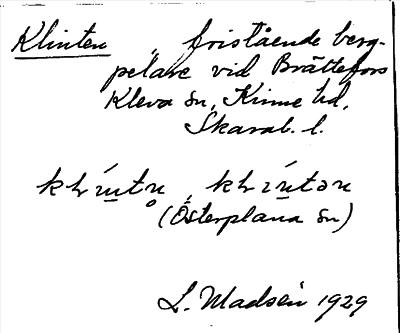 Klinten „ fristående berg-
pelare vid Brättefors
Kleva sn, Kinne hd,
Skarab. l.
(Österplana sn)
L. Madsén 1929